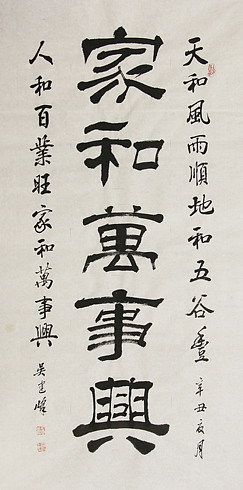 天和風雨順地和五谷豊
辛丑夏月
家和萬事興
人和百業旺家和萬事興
吴建峰